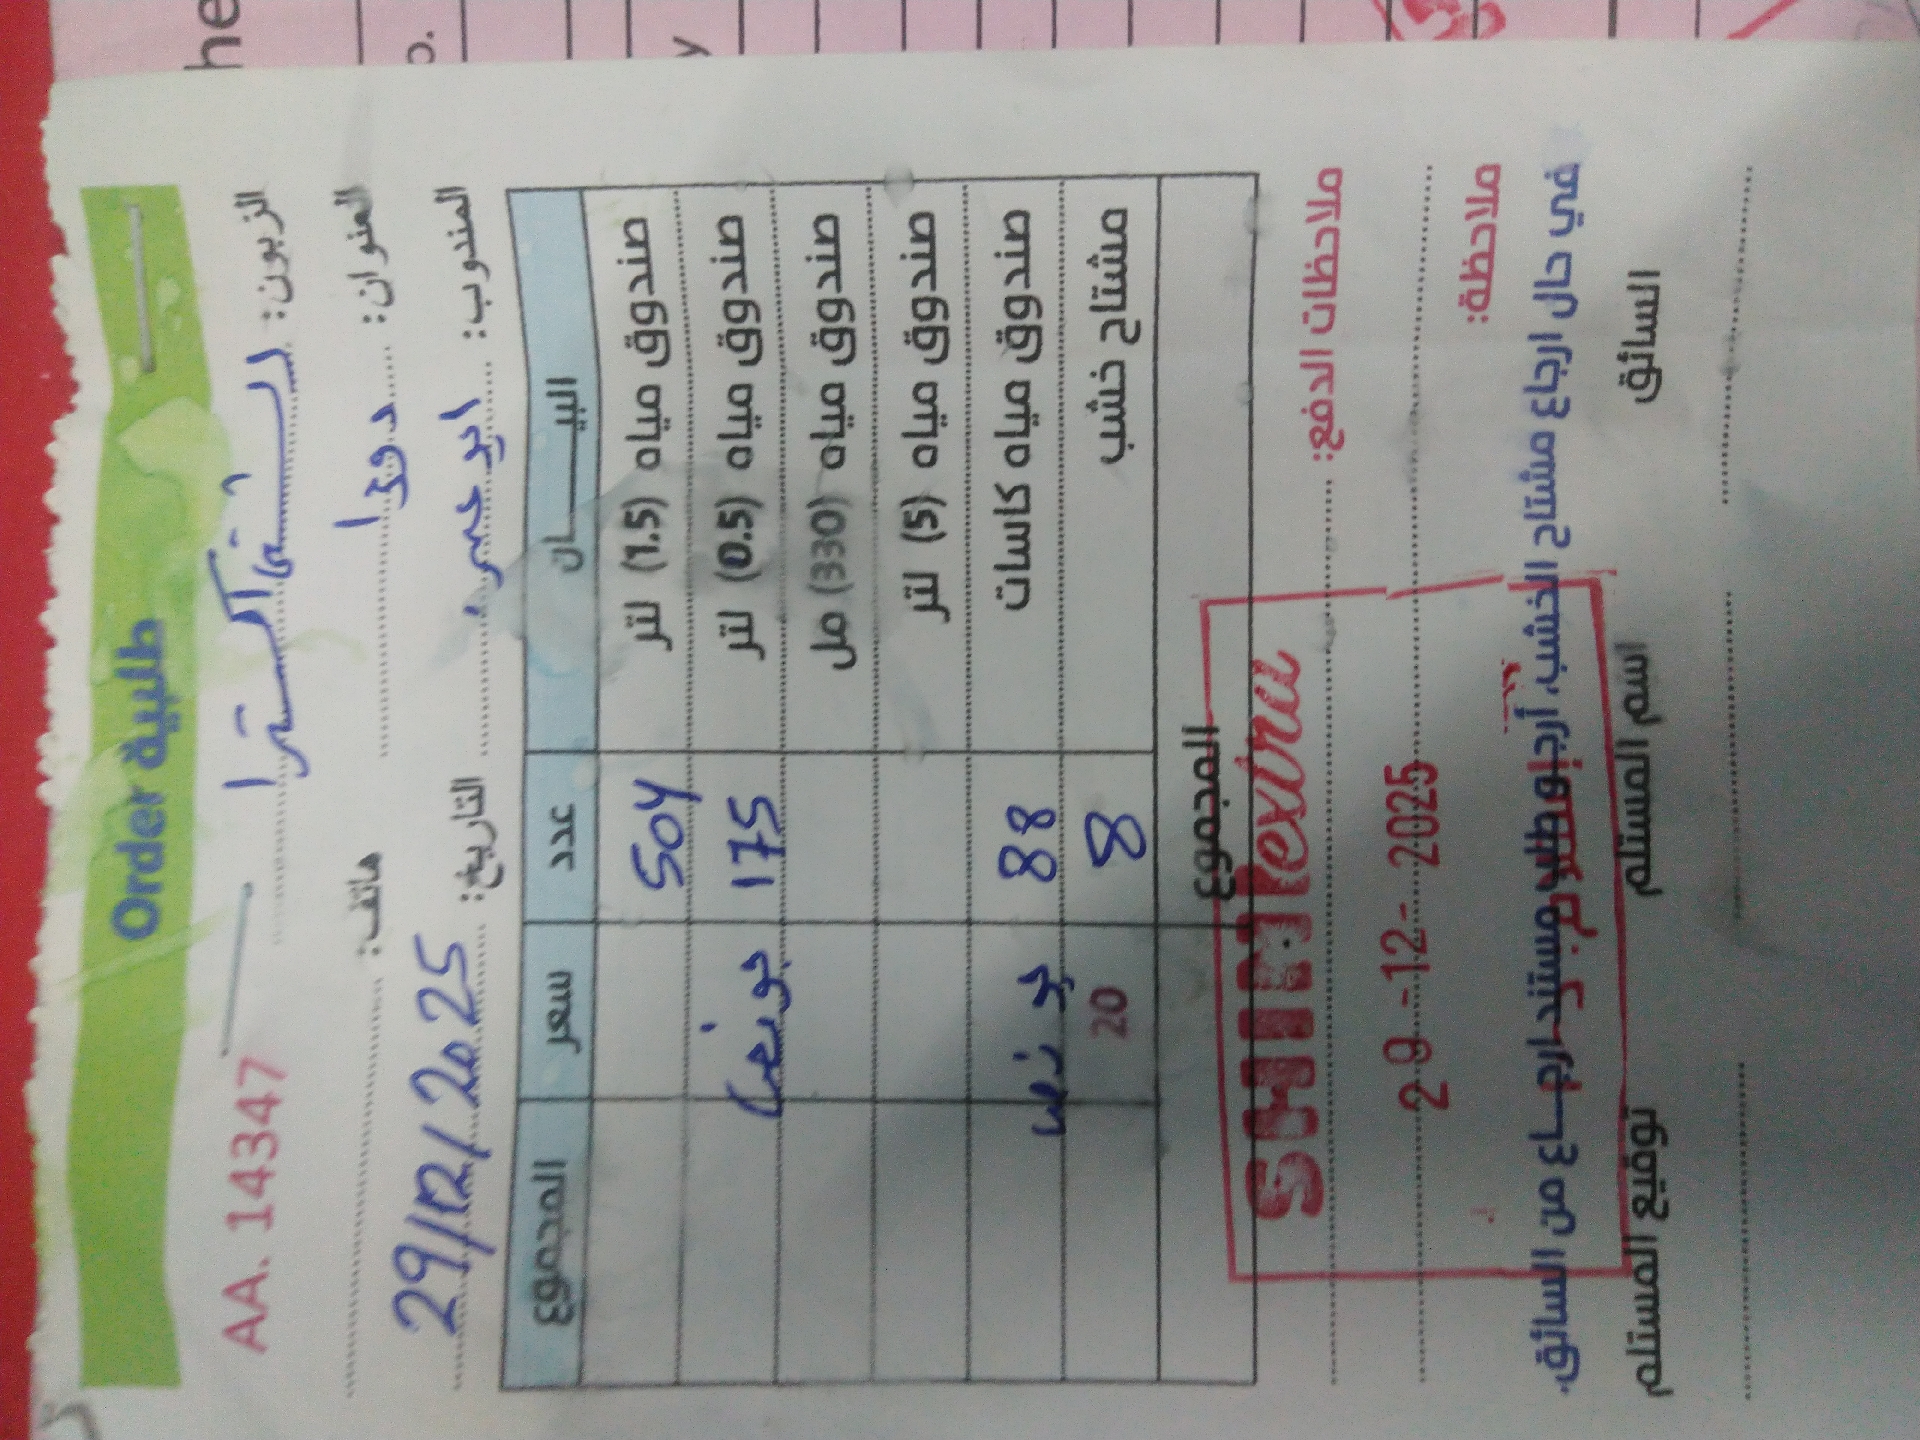 Order طلبية
AA. 14347
الزبون: الشني اكسترا
العنوان: دورا
هاتف:
المندوب: ابو عمر
التاريخ: 29/12/2025
البيـــــان عدد سعر المجموع
صندوق مياه (1.5) لتر 504
صندوق مياه (0.5) لتر 175 بونص
صندوق مياه (330) مل
صندوق مياه (5) لتر
صندوق مياه كاسات 88 بونص
مشتاح خشب 8 20
المجموع
SHINI extra
ملاحظات الدفع:
29-12-2025
ملاحظة:
في حال ارجاع مشتاح الخشب، أرجو طلب مستند ارجـاع من السائق.
السائق اسم المستلم توقيع المستلم